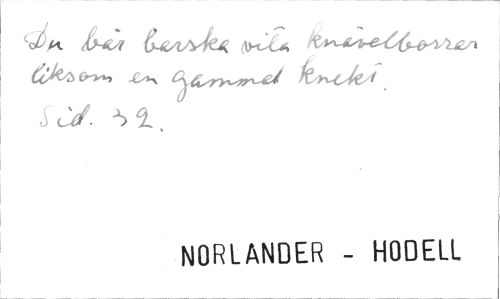 Du bär barska vita knävelborrar
liksom en gammal knekt.
Sid. 32.
NORLANDER - HODELL